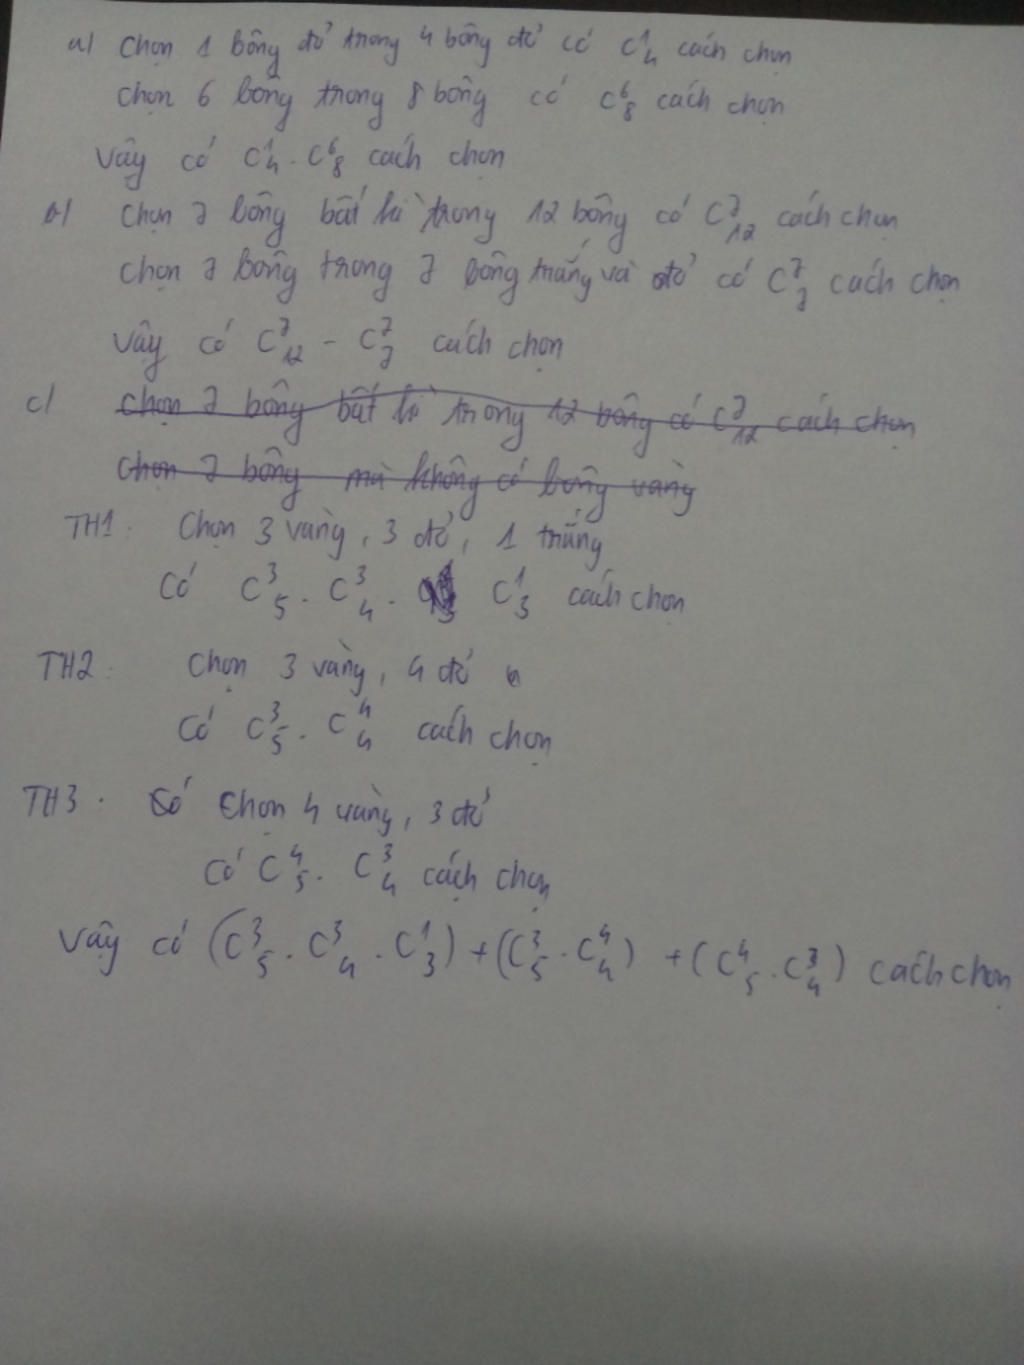 a) Chọn 1 bông đỏ trong 4 bông đỏ có C¹₄ cách chọn
chọn 6 bông trong 8 bông có C⁶₈ cách chọn
Vậy có C¹₄ . C⁶₈ cách chọn
b) Chọn 7 bông bất kì trong 12 bông có C⁷₁₂ cách chọn
chọn 7 bông trong 7 bông trắng và đỏ có C⁷₇ cách chọn
Vậy có C⁷₁₂ - C⁷₇ cách chọn
c) chọn 7 bông bất kì trong 12 bông có C⁷₁₂ cách chọn
Chọn 7 bông mà không có bông vàng
TH1: Chọn 3 vàng, 3 đỏ, 1 trắng
Có C³₅ . C³₄ . C¹₃ cách chọn
TH2: Chọn 3 vàng, 4 đỏ
Có C³₅ . C⁴₄ cách chọn
TH3. Có Chọn 4 vàng, 3 đỏ
Có C⁴₅ . C³₄ cách chọn
Vậy có (C³₅ . C³₄ . C¹₃) + (C³₅ . C⁴₄) + (C⁴₅ . C³₄) cách chọn